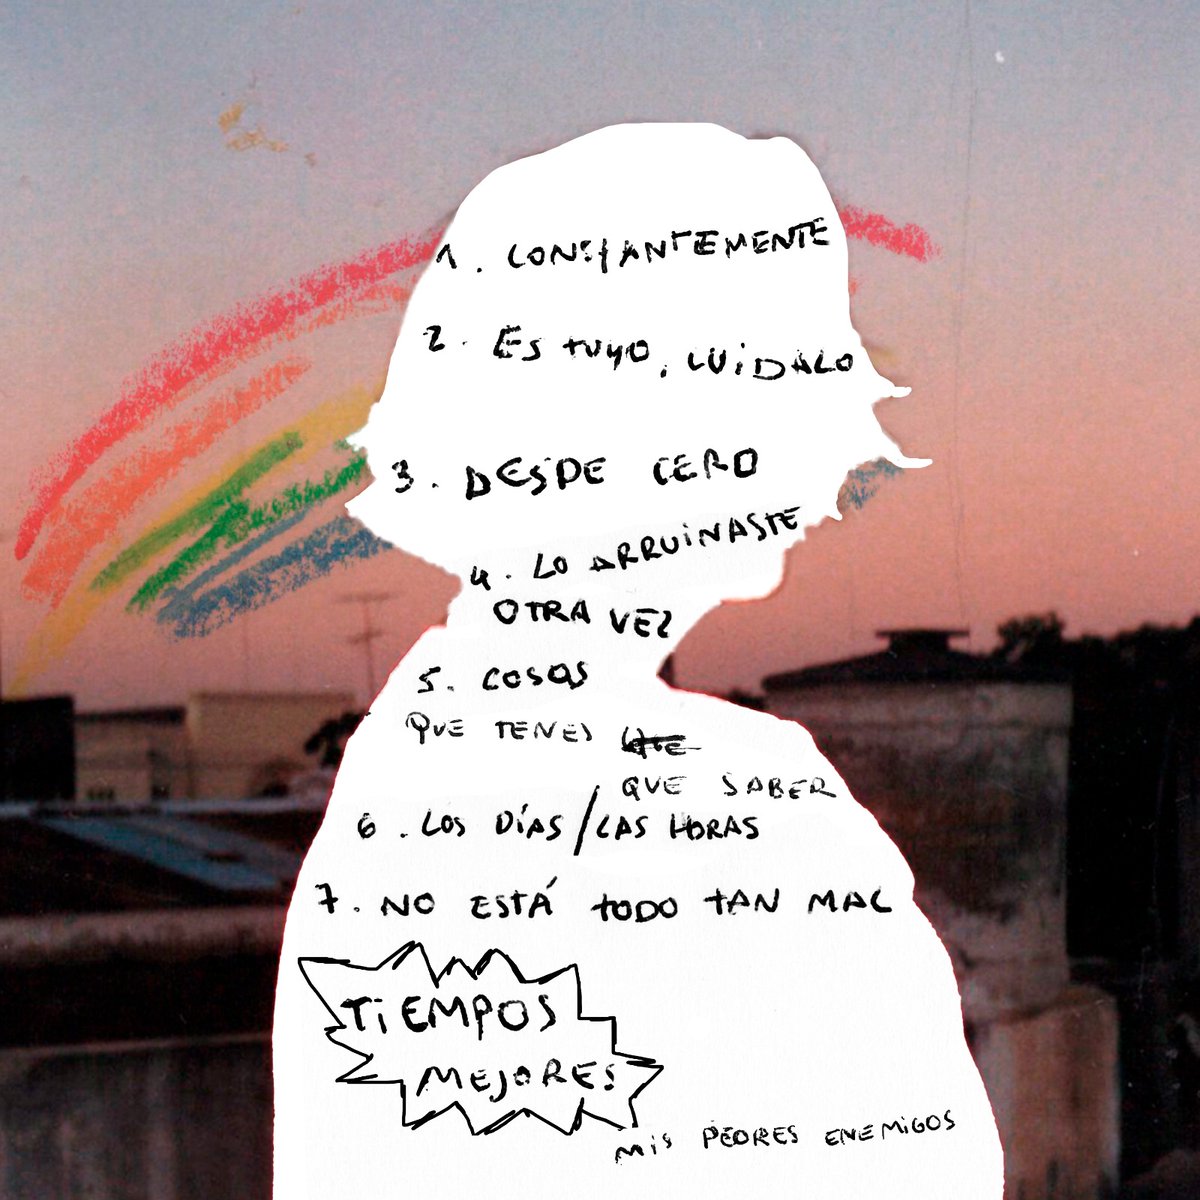 1. CONSTANTEMENTE
2. Es tuyo, CUiDALO
3. DESDE CERO
4. LO ARRUiNASTE
OTRA VEZ
5. COSAS
QUE TENES QUE
QUE SABER
6. LOS DÍAS/LAS HORAS
7. NO ESTÁ TODO TAN MAL
TiEMPOS
MEJORES
Mis PEORES ENEMiGOS